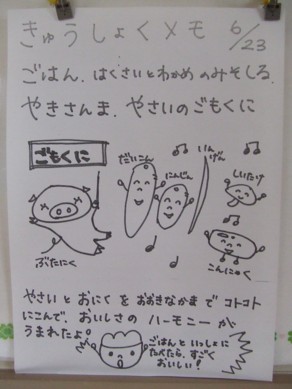 きゅうしょくメモ 6/23
ごはん、はくさいとわかめのみそしる、
やきさんま、やさいのごもくに
ごもくに
だいこん
にんじん
いんげん
しいたけ
こんにゃく
ぶたにく
やさいとおにくをおおきなかまでコトコト
にこんで、おいしさのハーモニーが
うまれたよ。
ごはんといっしょに
たべたら、すごく
おいしい!